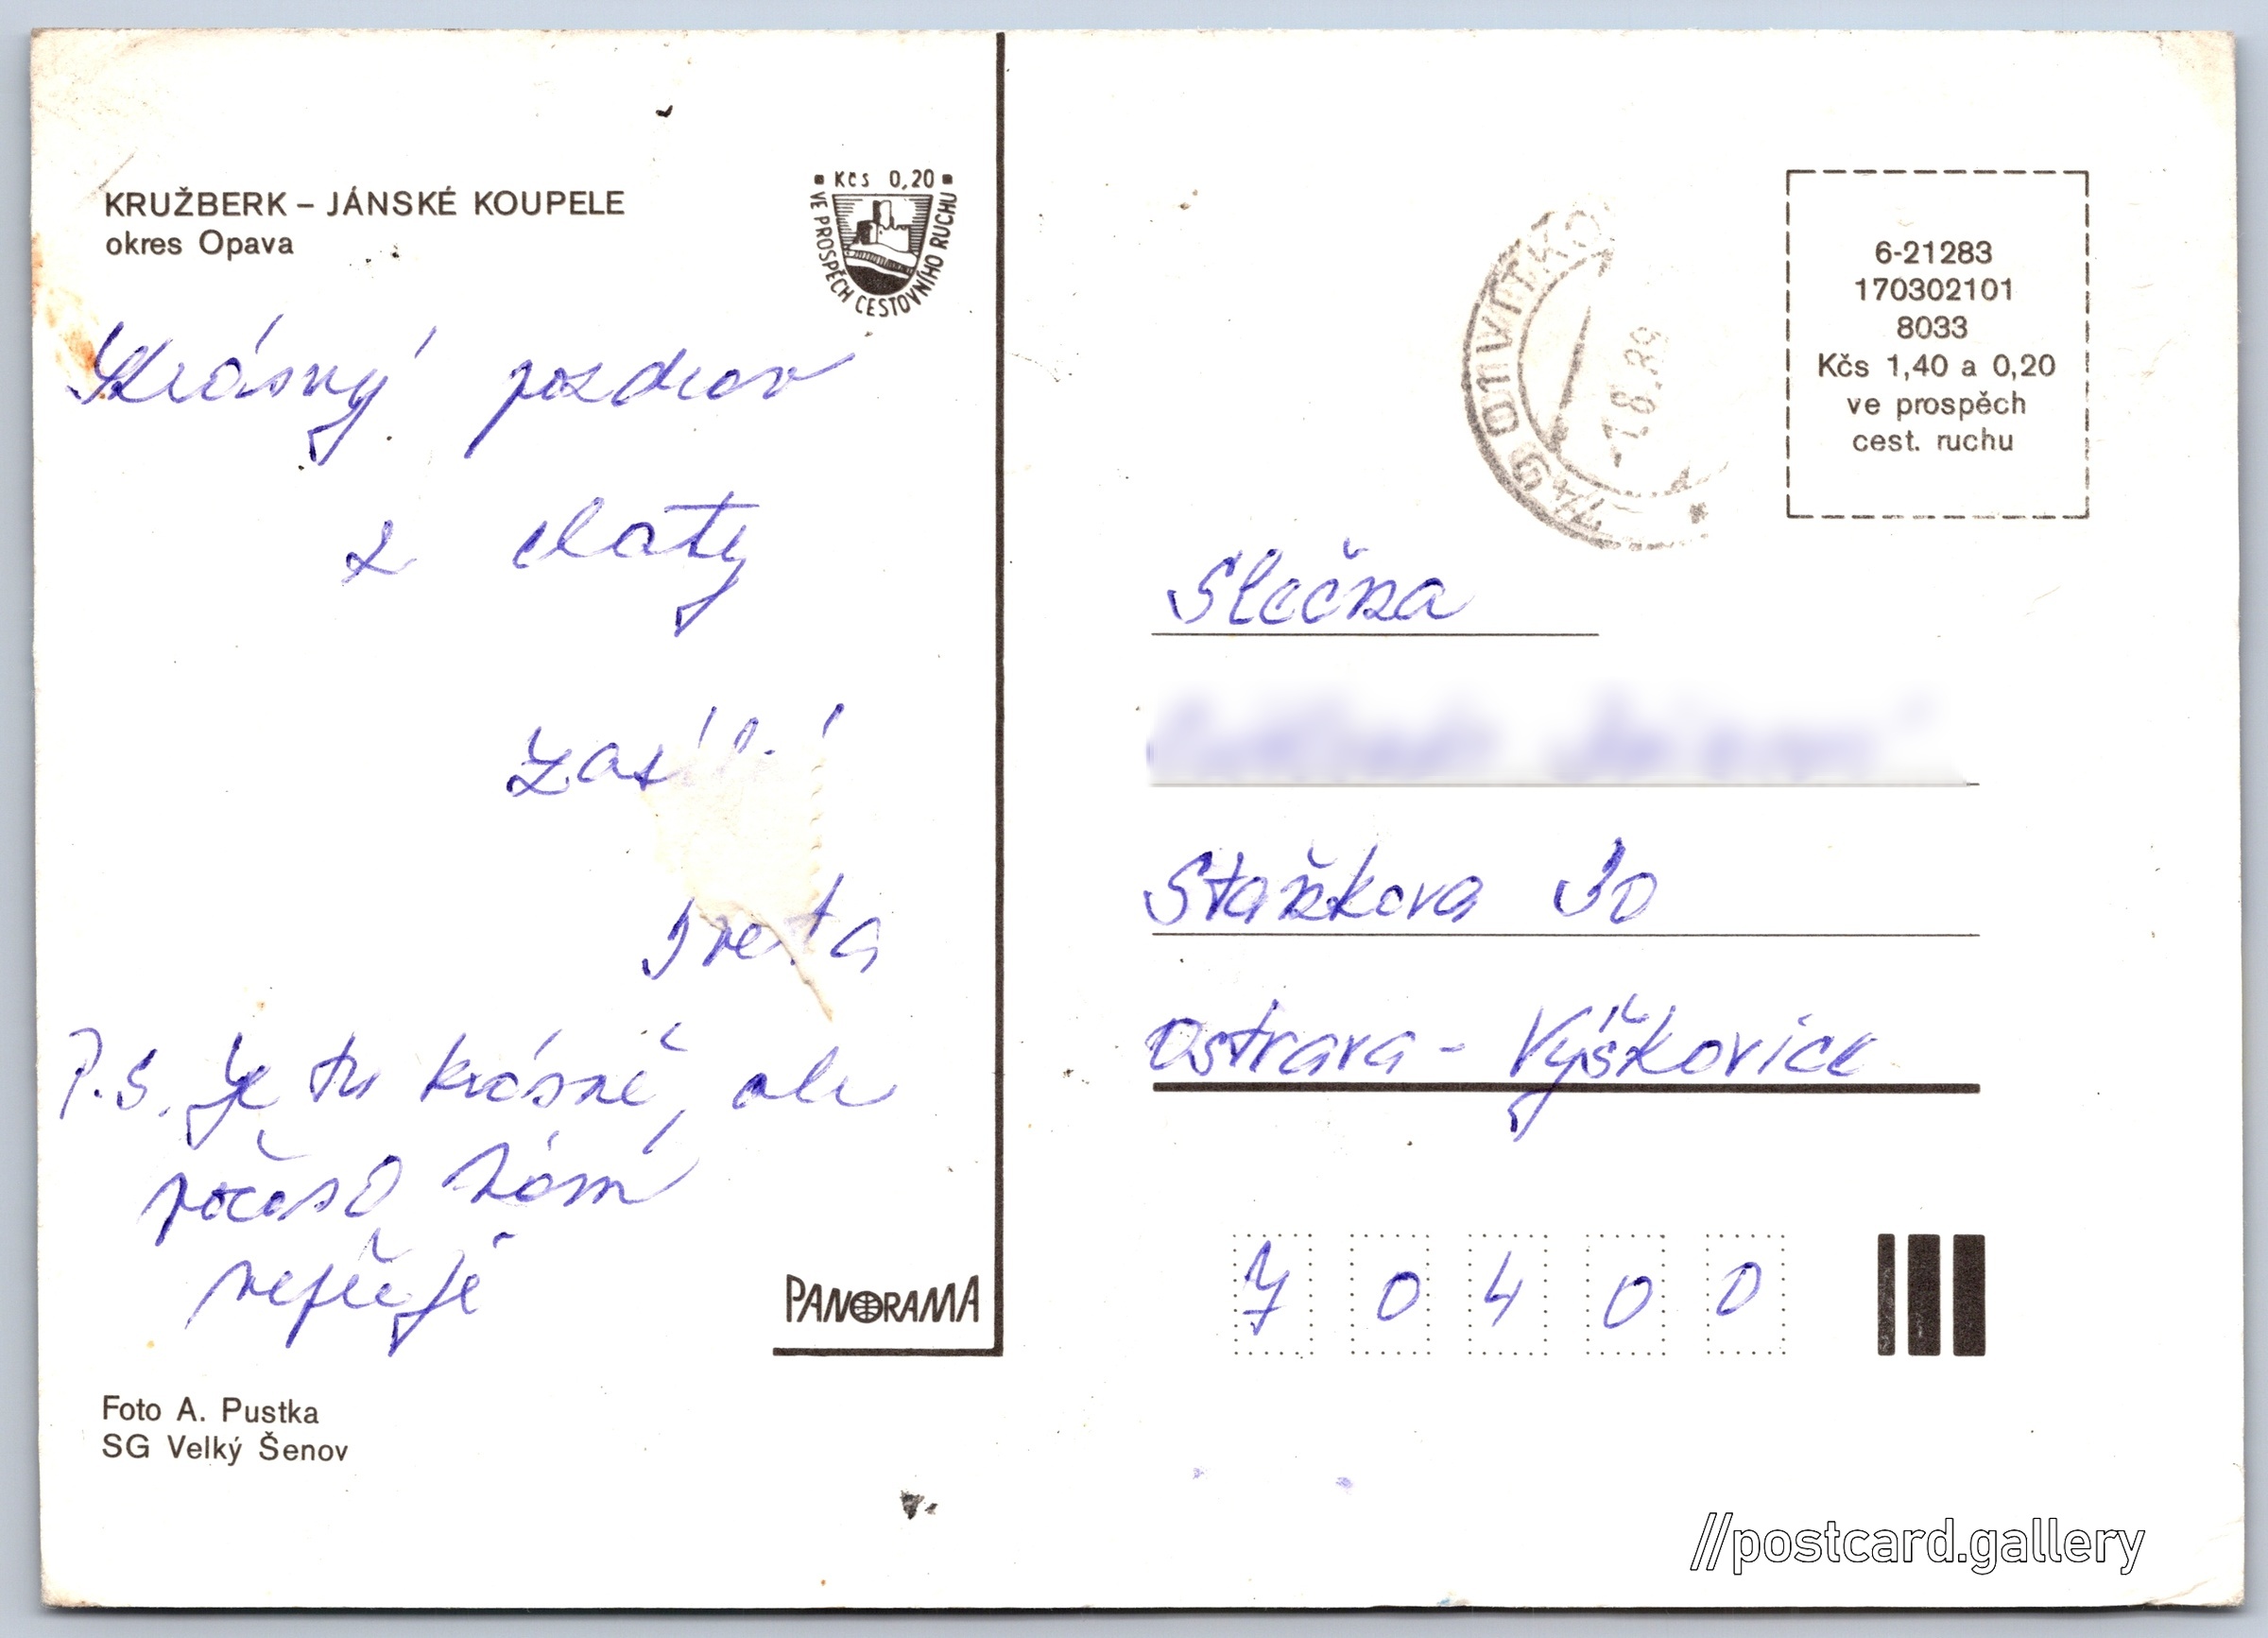 KRUŽBERK – JÁNSKÉ KOUPELE
okres Opava
▪ Kčs 0,20 ▪
VE PROSPĚCH CESTOVNÍHO RUCHU
Krásný pozdrav
z chaty
zasílá
Iveta
P.S. Je tu krásně, ale
počasí nám
nepřeje
PANORAMA
Foto A. Pustka
SG Velký Šenov
749 01 VÍTKOV
-1.8.89
6-21283
170302101
8033
Kčs 1,40 a 0,20
ve prospěch
cest. ruchu
Slečna
Staňkova 30
Ostrava - Výškovice
70400
//postcard.gallery